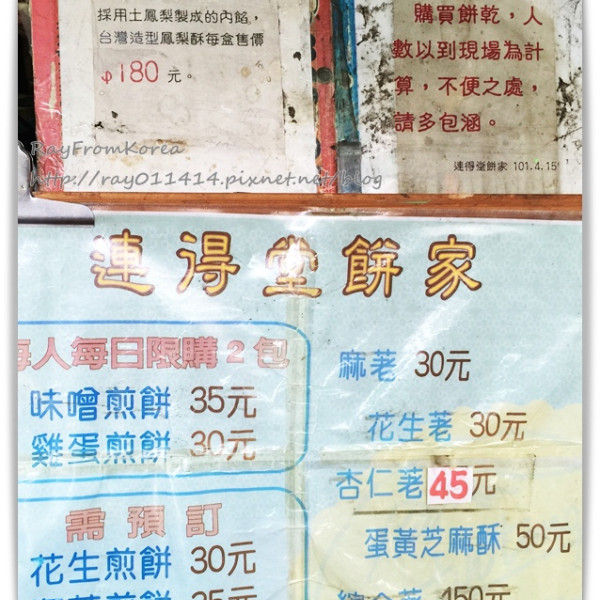 採用土鳳梨製成的內餡，
台灣造型鳳梨酥每盒售價
$180元。
購買餅乾，人
數以到現場為計
算，不便之處，
請多包涵。
連得堂餅家 101.4.15
RayFromKorea
http://ray011414.pixnet.net/blog
連得堂餅家
每人每日限購2包
味噌煎餅 35元
雞蛋煎餅 30元
需預訂
花生煎餅 30元
35元
麻荖 30元
花生荖 30元
杏仁荖 45元
蛋黃芝麻酥 50元
綜合荖 150元